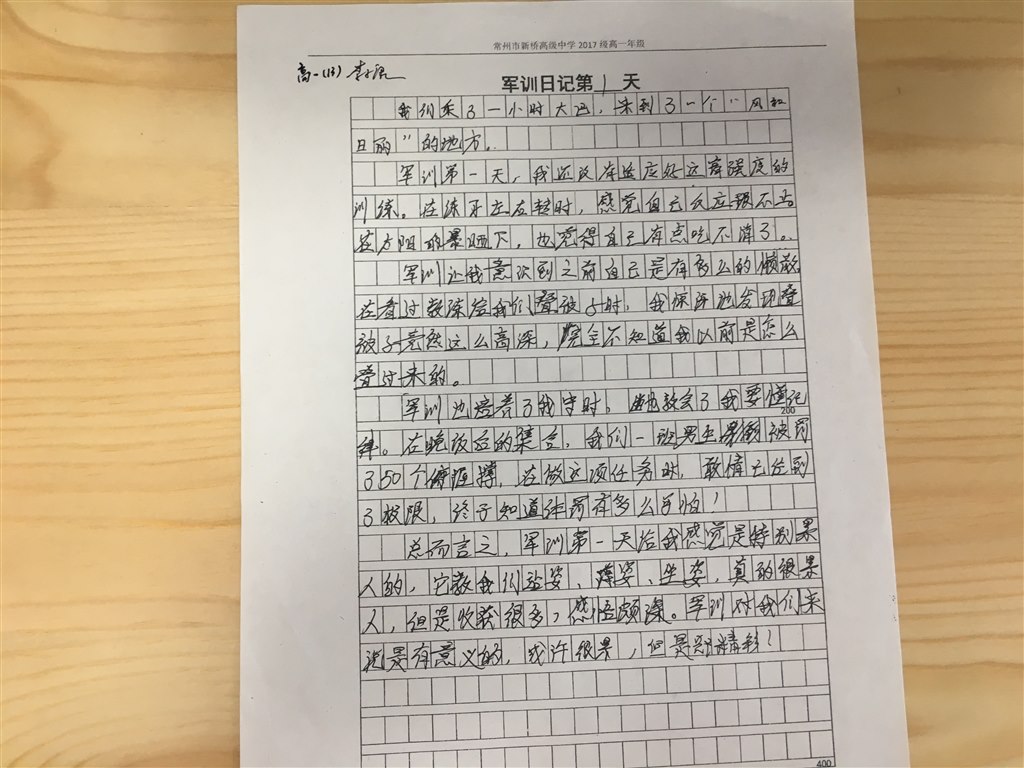 常州市新桥高级中学 2017 级高一年级
高一(13)
军训日记第 1 天
我们乘了一小时大巴，来到了一个“风和
日丽”的地方。
军训第一天，我还没有适应好这高强度的
训练。在练牙左右转时，感觉自己反应跟不上
在太阳的暴晒下，也觉得自己有点吃不消了。
军训让我意识到之前自己是有多么的懒散
在看过教练给我们叠被子时，我惊讶地发现叠
被子竟然这么高深，完全不知道我以前是怎么
叠过来的。
军训也培养了我守时，也教会了我要懂纪
200
律。在晚饭后的集合，我们一班男生 被罚
了50个俯卧撑，在做这项任务时，敢情已经到
了极限，终于知道体罚有多么可怕！
总而言之，军训第一天后我感觉是特别累
人的，它教我们站姿、蹲姿、坐姿，真的很累
人，但是收获很多，感悟颇深。军训对我们来
说是有意义的，或许很累，但是别精彩！
400